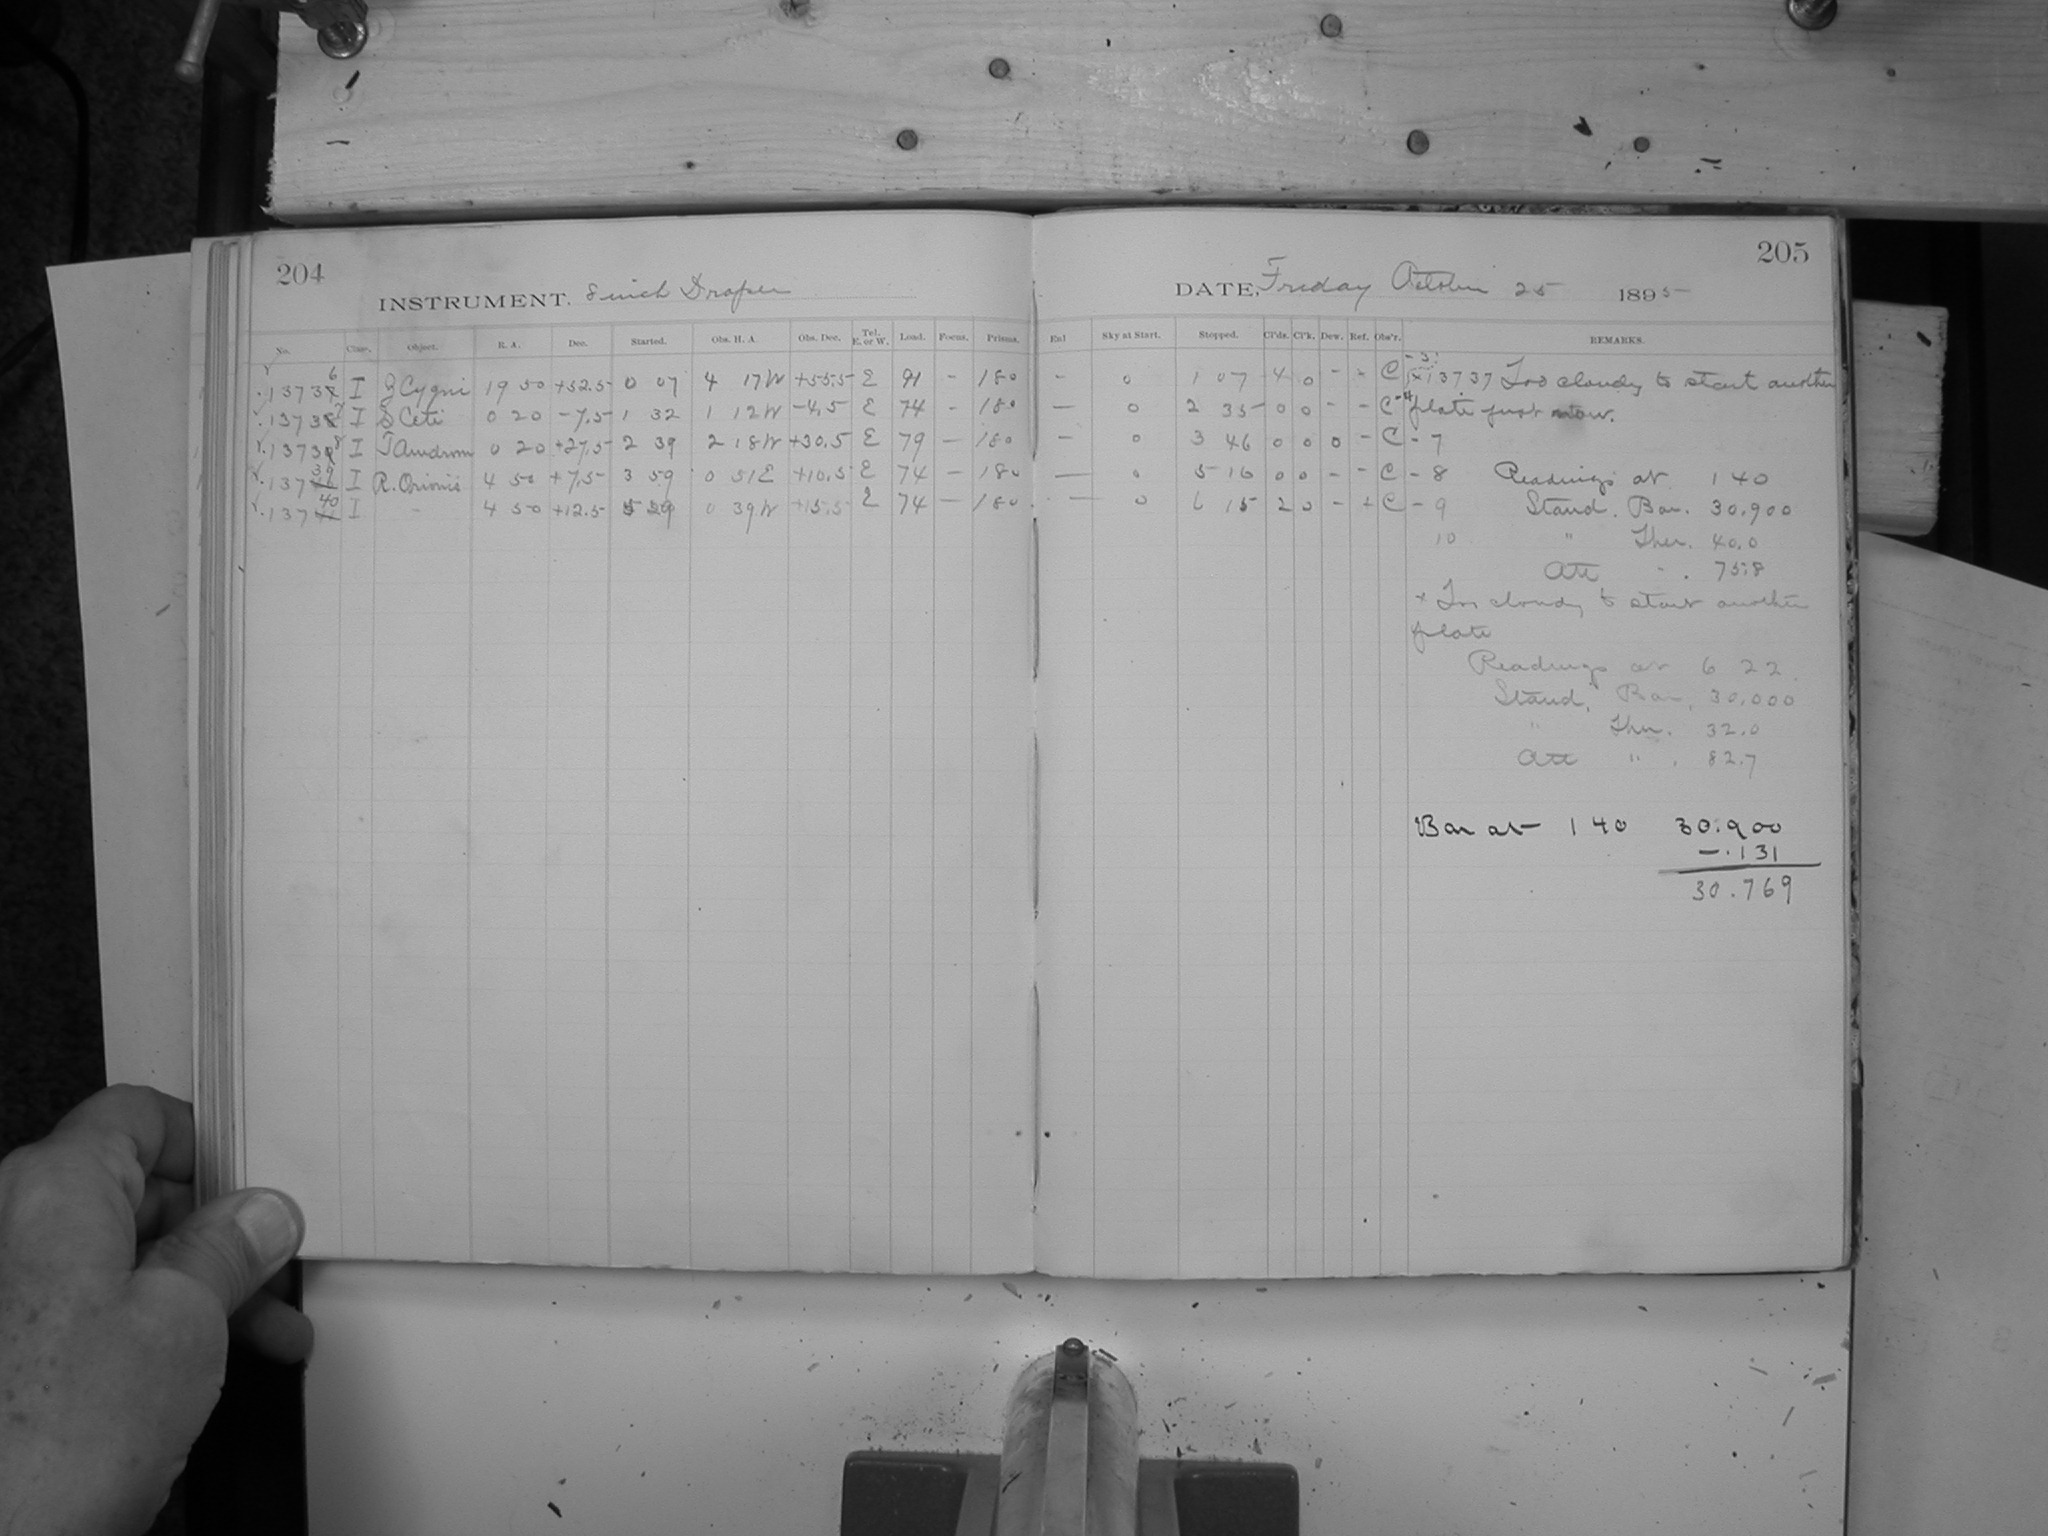 204
INSTRUMENT. 8 inch Draper
No. Class. Object. R. A. Dec. Started. Obs. H. A. Obs. Dec. Tel. E. or W. Load. Focus. Prisms.
13736 I Z Cygni 19 50 +52.5 0 07 4 17W +55.5 E 91 - 180
13737 I S Ceti 0 20 -7.5 1 32 1 12W -4.5 E 74 - 180
13738 I T Androm 0 20 +27.5 2 39 2 18W +30.5 E 79 - 180
13739 I R. Orionis 4 50 +7.5 3 59 0 51E +10.5 E 74 - 180
13740 I - 4 50 +12.5 5 29 0 39W +15.5 E 74 - 180
205
DATE, Friday October 25 1895
Enl Sky at Start. Stopped. Cl'ds. Cl'k. Dew. Ref. Obs'r. REMARKS.
- 0 1 07 4 0 - - C -3 × 13737 Too cloudy to start another
- 0 2 35 0 0 - - C -4 plate just now.
- 0 3 46 0 0 0 - C - 7
- 0 5 16 0 0 - - C - 8 Readings at 1 40
- 0 6 15 2 0 - + C - 9 Stand. Bar. 30.900
10 " Ther. 40.0
Att " . 75.8
× Too cloudy to start another
plate
Readings at 6 22
Stand. Bar. 30.000
" Ther. 32.0
Att " . 82.7
Bar at 1 40 30.900
-.131
30.769